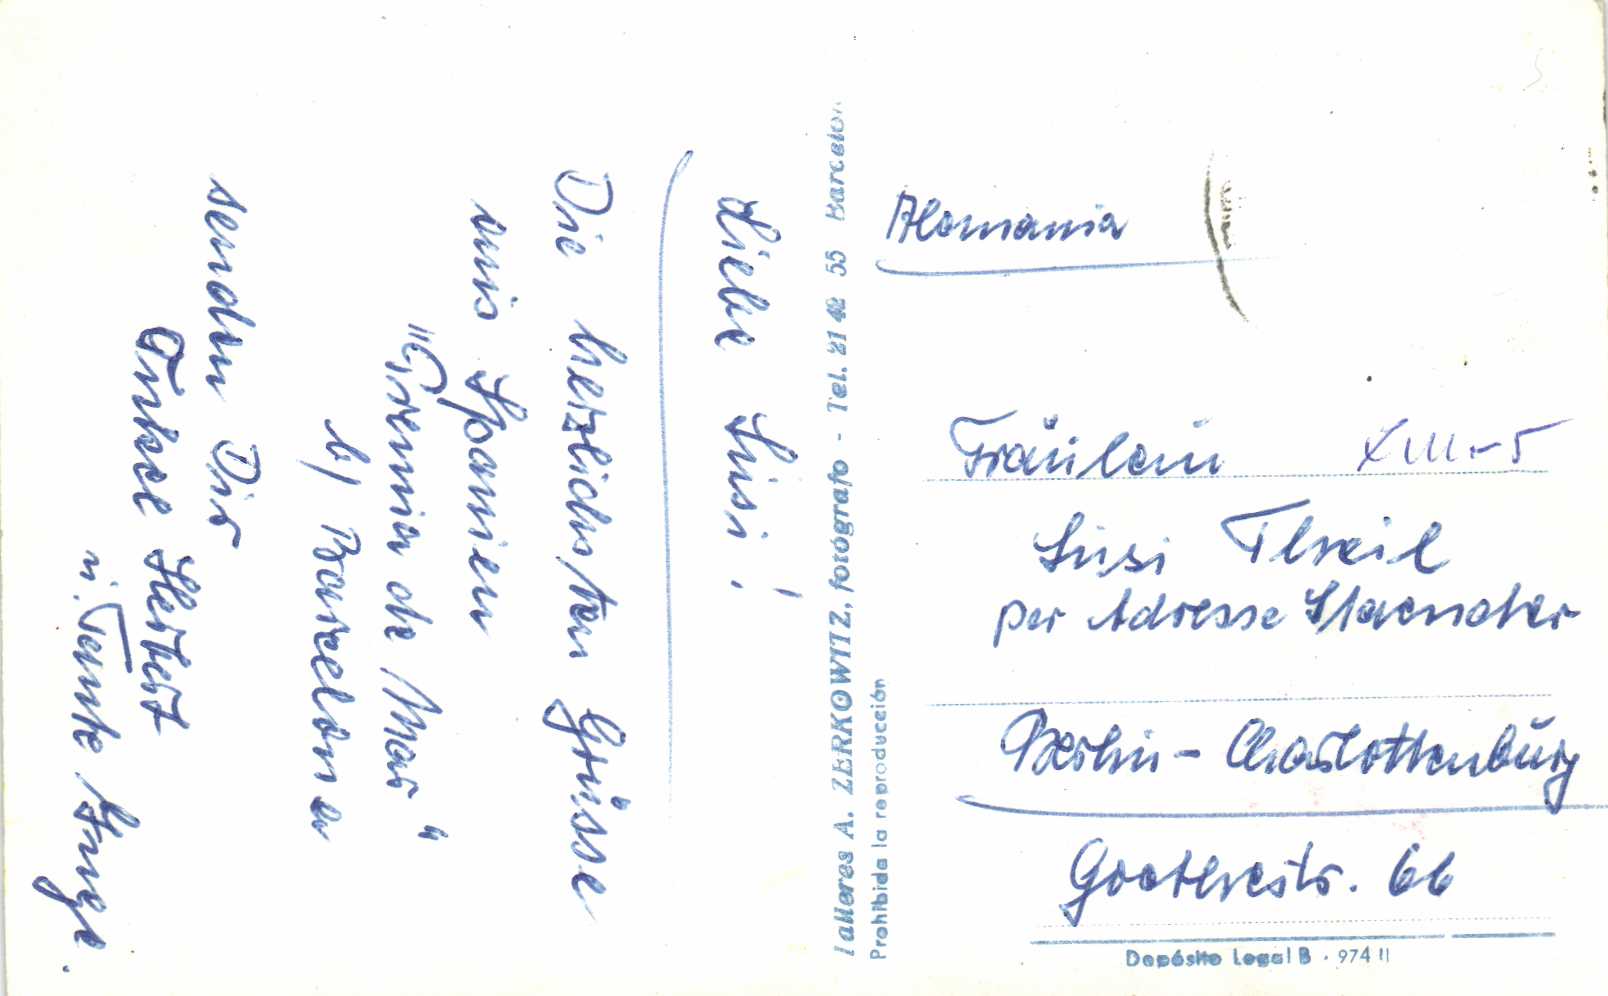 Liebe Susi!
Die herzlichsten Grüsse
aus Spanien
"Premia de Mar"
b/ Barcelona
senden Dir
Onkel Herbert
u. Tante Inge.
Talleres A. ZERKOWITZ, fotógrafo - Tel. 21 42 55 Barcelon
Prohibida la reproducción
Alemania
Fräulein XIII-5
Susi Theil
per Adresse Staender
Berlin-Charlottenburg
Goethestr. 66
Depósito Legal B · 974 II